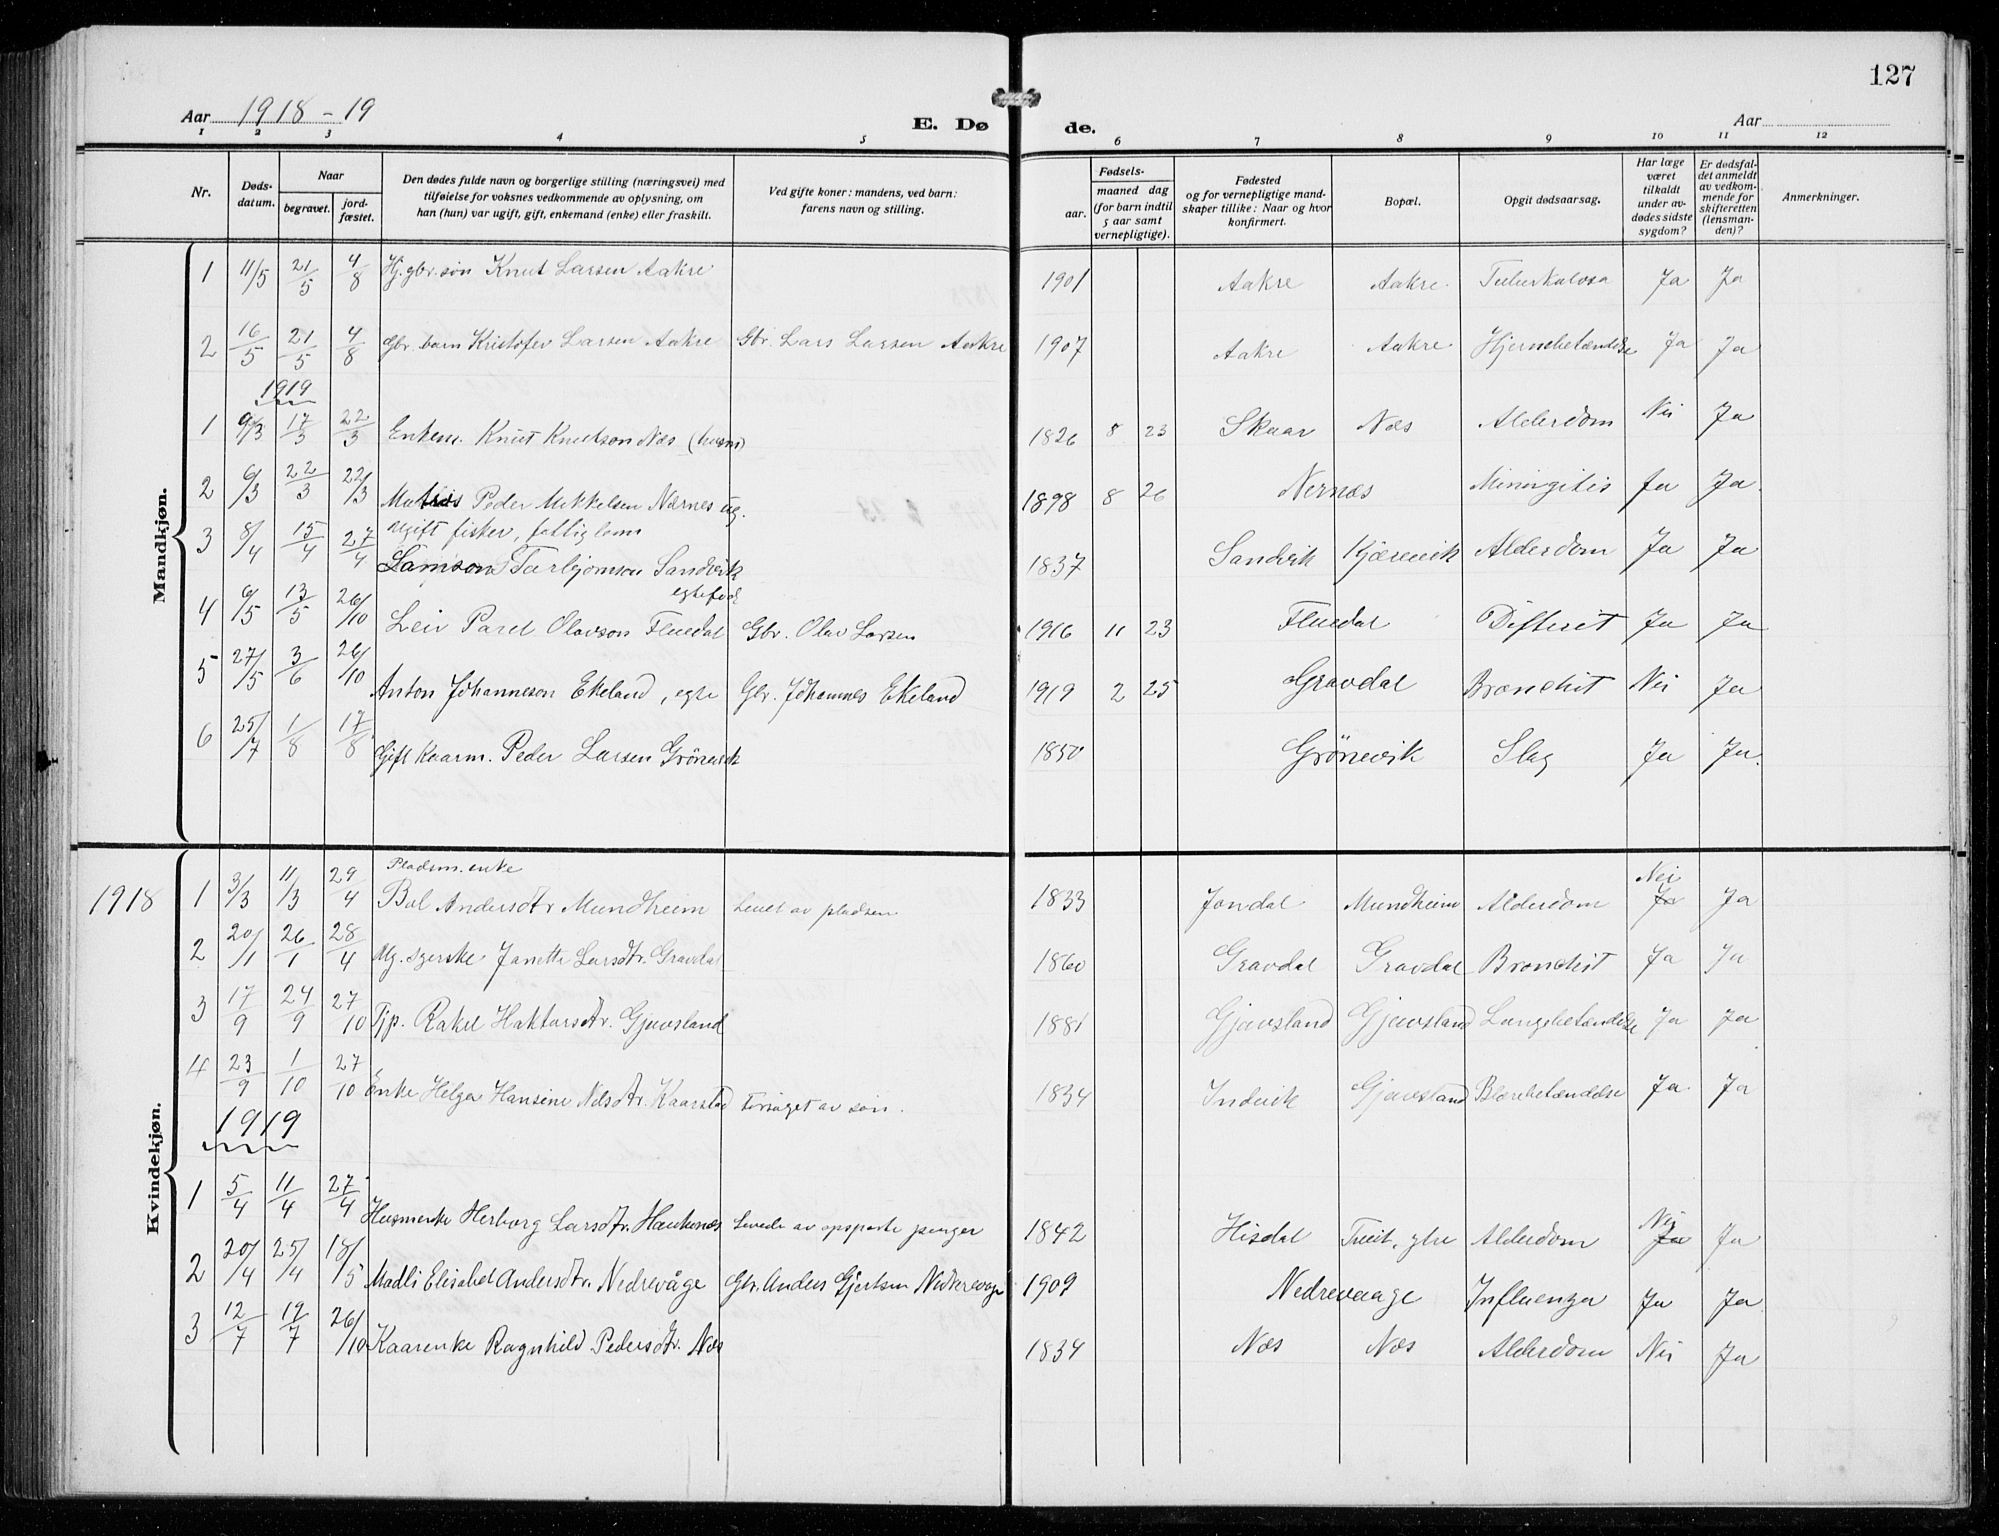 127
Aar 1918-19
E. Døde.
Aar
1 2 3 4 5 6 7 8 9 10 11 12
Nr.
Døds-datum.
Naar
begravet.
jord-fæstet.
Den dødes fulde navn og borgerlige stilling (næringsvei) med tilføielse for voksnes vedkommende av oplysning, om han (hun) var ugift, gift, enkemand (enke) eller fraskilt.
Ved gifte koner: mandens, ved barn: farens navn og stilling.
Fødsels-
aar.
maaned dag
(for barn indtil 5 aar samt vernepligtige).
Fødested og for vernepligtige mand-skaper tillike: Naar og hvor konfirmert.
Bopæl.
Opgit dødsaarsag.
Har læge været tilkaldt under av-dødes sidste sygdom?
Er dødsfal-det anmeldt av vedkom-mende for skifteretten (lensman-den)?
Anmerkninger.
Mandkjøn.
1 11/5 21/5 4/8 Hj. gbr. søn Knut Larsen Aakre 1901 Aakre Aakre Tuberkulosa Ja Ja
2 16/5 21/5 4/8 Gbr. barn Kristofer Larsen Aakre Gbr. Lars Larsen Aakre 1907 Aakre Aakre Hjernebetændelse Ja Ja
1919
1 9/3 17/3 22/3 Enkem. Knut Knutson Næs (husm) 1826 8 23 Skaar Næs Alderdom Nei Ja
2 6/3 22/3 22/3 Matros Peder Mikkelsen Nærnes ug. 1898 8 26 Nernæs Miningitis Ja Ja
3 8/4 15/4 27/4 ugift fisker, fattiglem
Samson Torbjørnson Sandvik 1837 Sandvik Kjærevik Alderdom Ja Ja
4 6/5 13/5 26/10 Leiv Parel Olavson Fluedal egtefød Gbr. Olav Larsen 1916 11 23 Fluedal Difterit Ja Ja
5 27/5 3/6 26/10 Anton Johanneson Ekeland, egte Gbr. Johannes Ekeland 1919 2 25 Gravdal Bronchit Nei Ja
6 25/7 1/8 17/8 Gift Kaarm. Peder Larsen Grönevik 1850 Grönevik Slag Ja Ja.
Kvindekjøn.
1918
1 3/3 11/3 29/4 Pladsm. enke
Bol Andersdtr Mundheim Levet av pladsen 1833 Jondal Mundheim Alderdom Nei Ja Ja
2 20/1 26/1 28/4 Ug. syerske Janette Larsdtr. Gravdal 1860 Gravdal Gravdal Bronchit Ja Ja
3 17/9 24/9 27/10 Tjp. Rakel Haktorsdtr. Gjevsland 1881 Gjevsland Gjevsland Lungebetændelse Ja Ja
4 23/9 1/10 27/10 Enke Helga Hansine Nilsdtr. Kaarstad Forsøget av søn. 1834 Indvik Gjevsland Blærebetændelse Ja Ja
1919
1 5/4 11/4 27/4 Husmenke Herborg Larsdtr. Haukenæs Levede av opsparte penger 1842 Hisdal Tveit, ytre Alderdom Nei Ja Ja
2 20/4 25/4 18/5 Madli Elisabet Andersdtr. Nedrevåge Gbr. Anders Gjertsen Nedrevaage 1909 Nedrevaage Influenza Ja Ja
3 12/7 19/7 26/10 Kaarenke Ragnhild Pedersdtr. Næs 1834 Næs Næs Alderdom Nei Ja